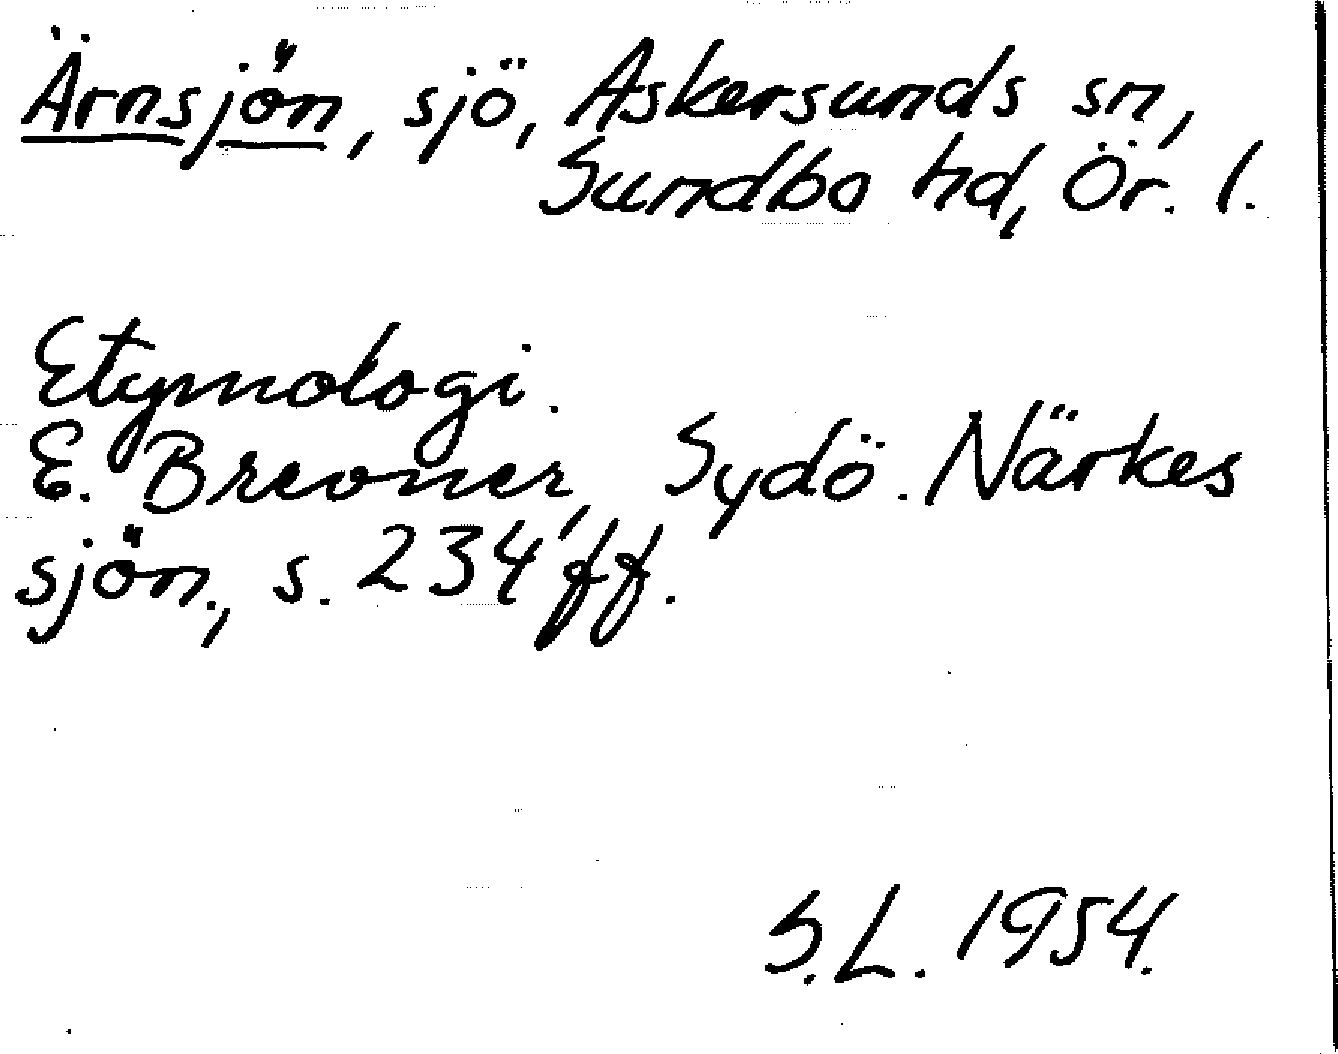 Ärnsjön, sjö, Askersunds sn,
Sundbo hd, Ör. l.
Etymologi.
E. Brevner, Sydö. Närkes
sjön., s. 234 ff.
S.L. 1954.